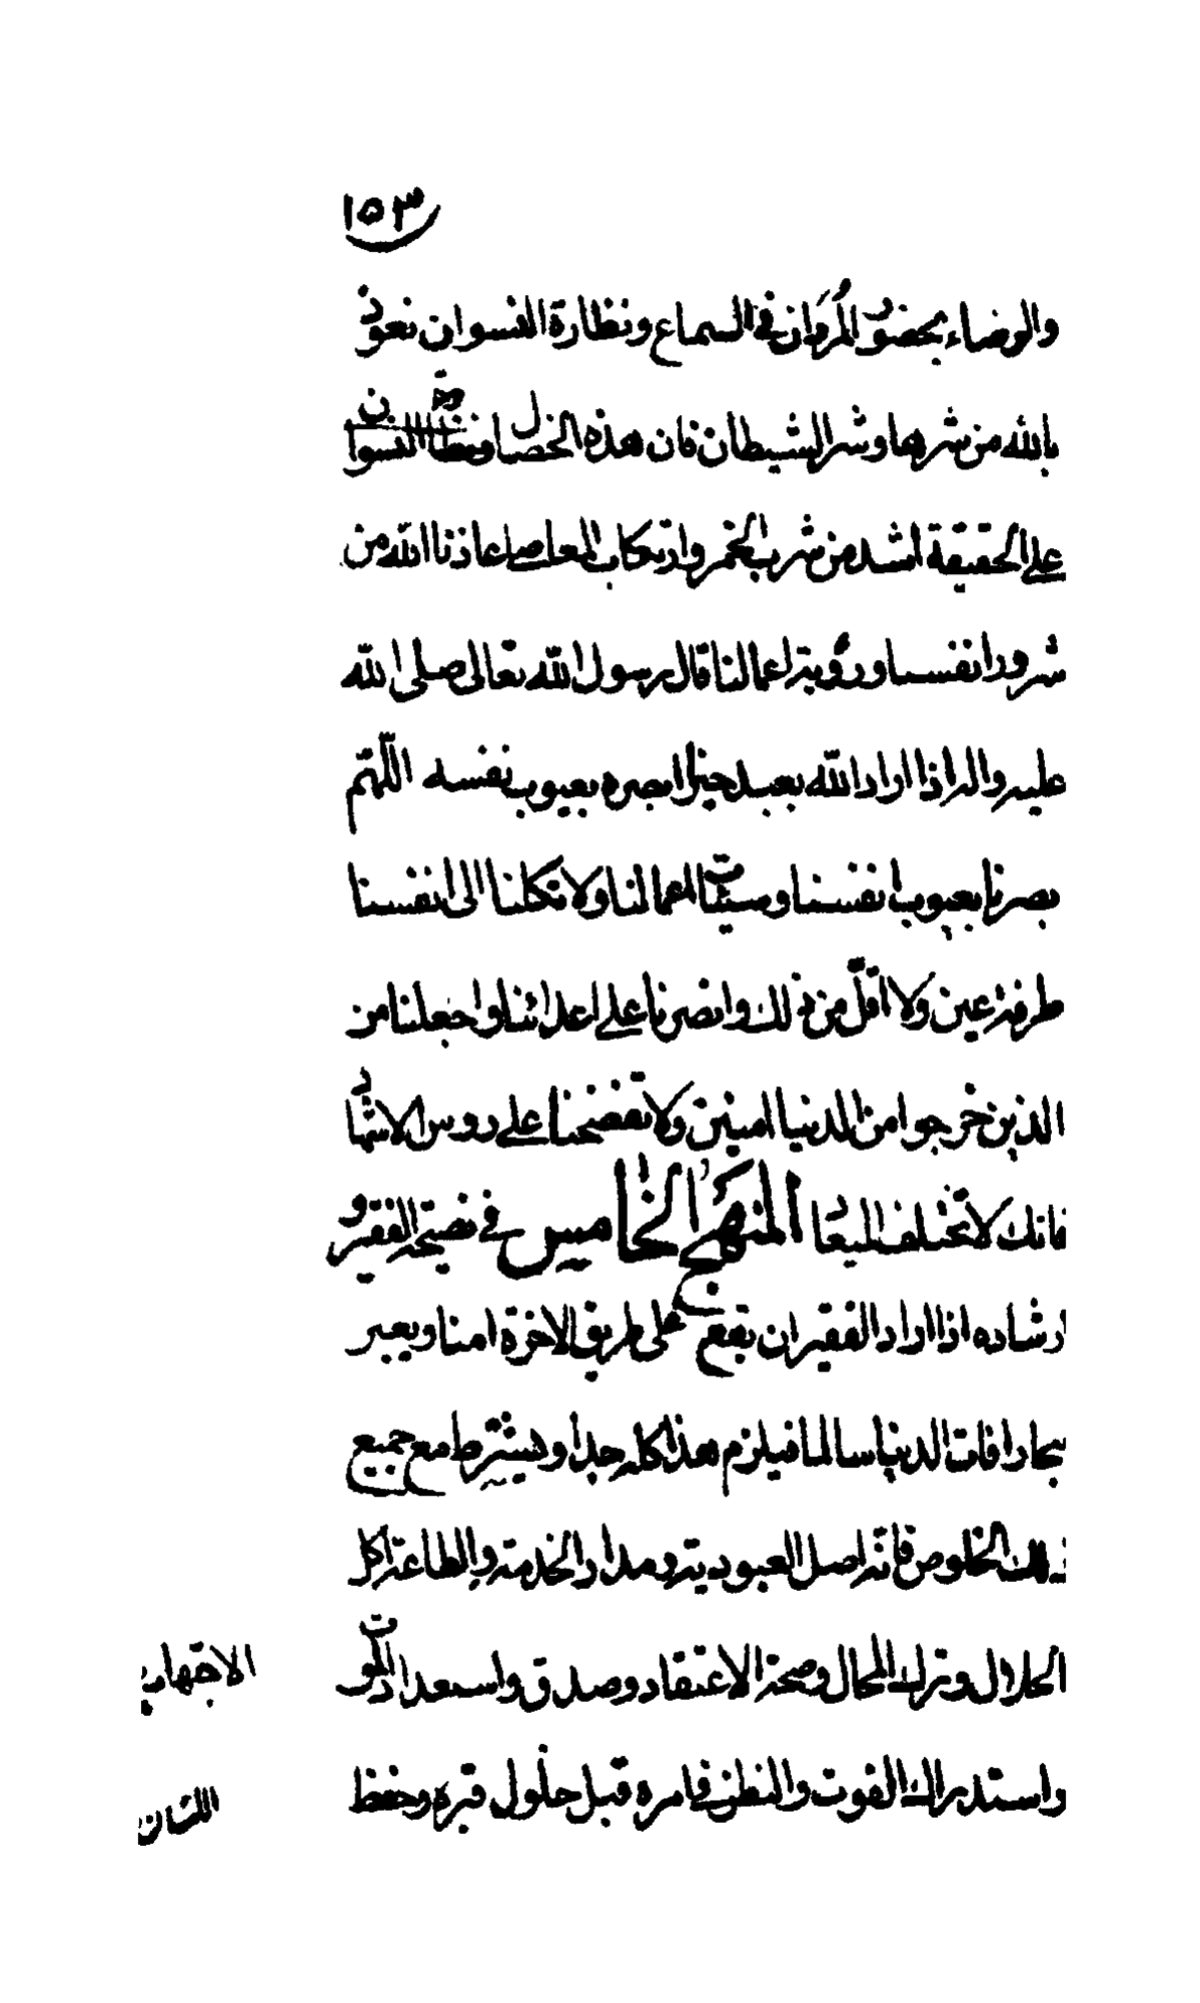 ١٥٣
والرضاء بحضور المُردان في السماع ونظارة النسوان نعوذ
بالله من شرها وشر الشيطان فان هذه الخصال ونظارة النسوان
على الحقيقة اشد من شرب الخمر وارتكاب المعاصى اعاذنا الله من
شرور انفسنا ورؤية اعمالنا قال رسول الله تعالى صلى الله
عليه واله اذا اراد الله بعبد خيرا بصره بعيوب نفسه اللّهمّ
بصرنا بعيوب انفسنا وسيئات اعمالنا ولا تكلنا الى انفسنا
طرفة عين ولا اقلّ من ذلك وانصرنا على اعدائنا واجعلنا من
الذين خرجوا من الدنيا امنين ولا تفضحنا على روس الاشهاد
فانك لا تخلف الميعاد المنهج الخامس في نصيحة الفقير و
ارشاده اذا اراد الفقير ان يقع على طريق الاخرة امنا ويعبر
بحار افات الدنيا سالما فيلزم هذا كله جدا ويشترط مع جميع
ذلك الخلوص فانّه اصل العبودية ومدار الخدمة والطاعة اكل
الحلال وترك المحال وصحة الاعتقاد وصدق واستعداد الموت
الاجتهاد
واستدراك الفوت والنظر في امره قبل حلول قبره وحفظ
اللسان